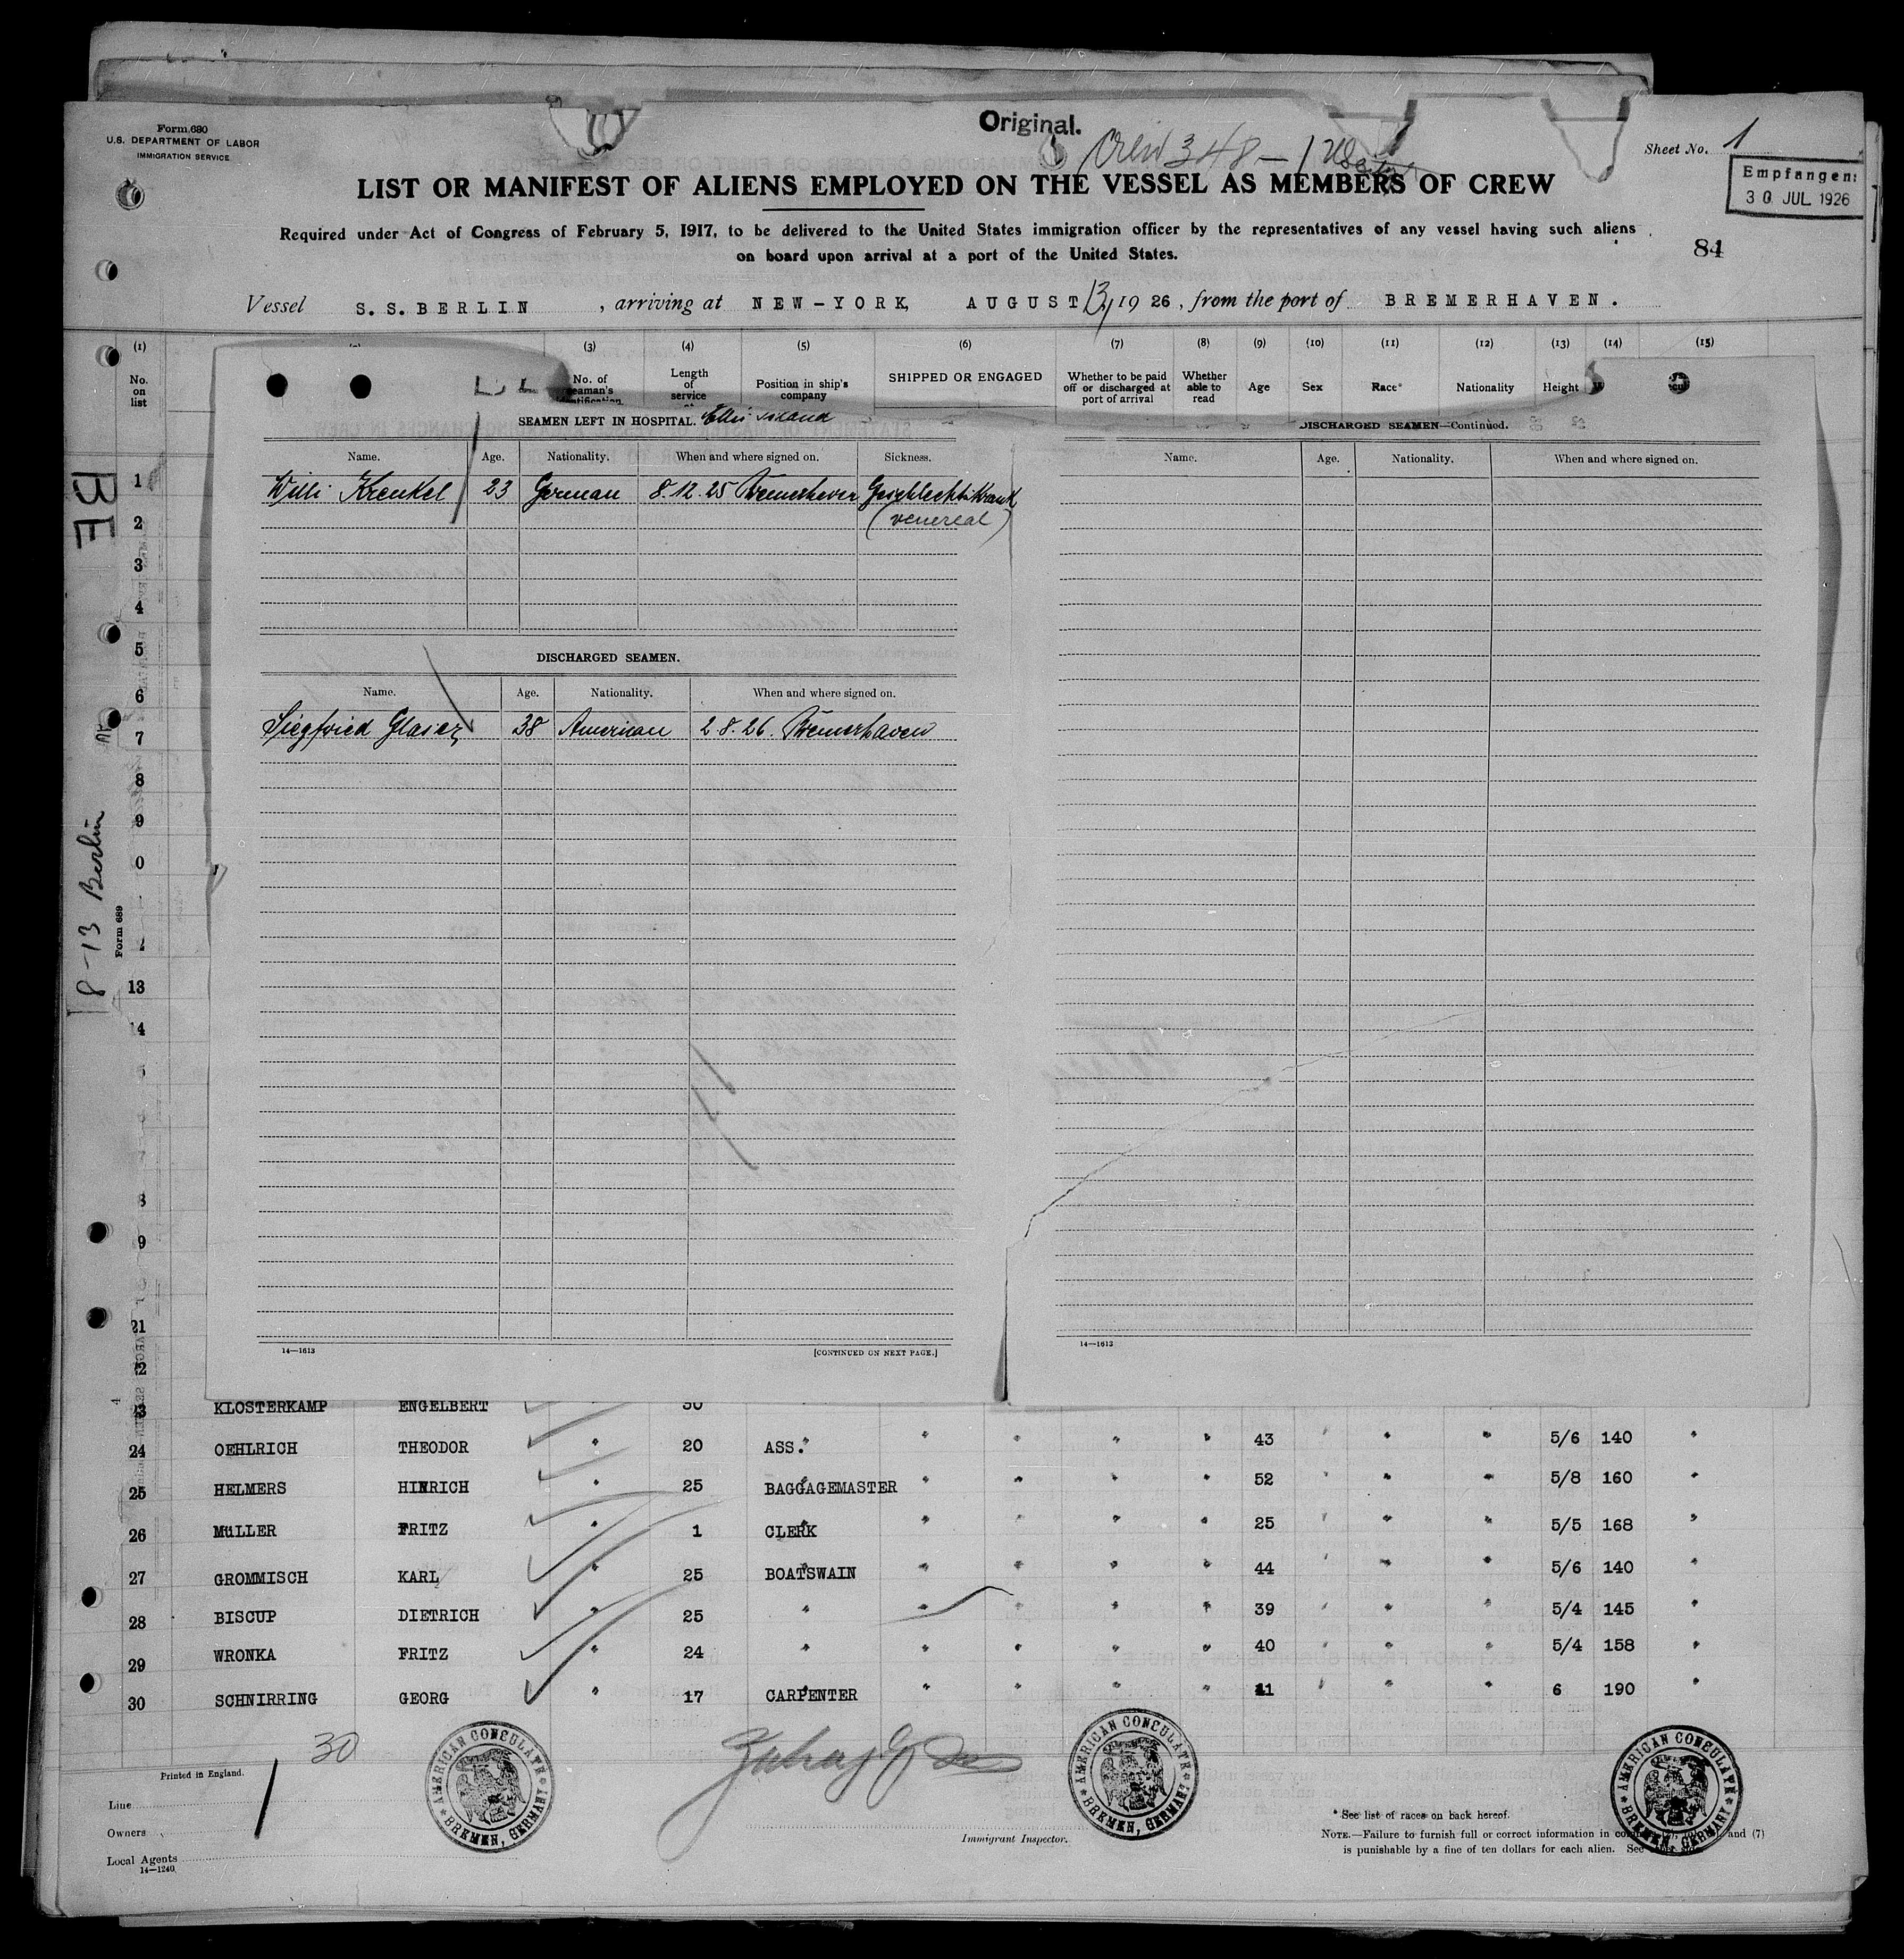 Form 680
U.S. DEPARTMENT OF LABOR
IMMIGRATION SERVICE
Original.
Crew 348 - 1
Sheet No. 1
Empfangen:
30 JUL 1926
LIST OR MANIFEST OF ALIENS EMPLOYED ON THE VESSEL AS MEMBERS OF CREW
Required under Act of Congress of February 5, 1917, to be delivered to the United States immigration officer by the representatives of any vessel having such aliens
on board upon arrival at a port of the United States.
84
Vessel S.S. BERLIN, arriving at NEW-YORK, AUGUST 13, 1926, from the port of BREMERHAVEN.
(1) (3) (4) (5) (6) (7) (8) (9) (10) (11) (12) (13) (14) (15)
No. on list
No. of seaman's identification
Length of service
Position in ship's company
SHIPPED OR ENGAGED
Whether to be paid off or discharged at port of arrival
Whether able to read
Age
Sex
Race*
Nationality
Height
SEAMEN LEFT IN HOSPITAL. Ellis Island
Name. Age. Nationality. When and where signed on. Sickness.
Willi Krenkel 23 German 8.12.25 Bremerhaven Geschlechtskrank
(venereal)
DISCHARGED SEAMEN.
Name. Age. Nationality. When and where signed on.
Siegfried Glaser 38 American 2.8.26. Bremerhaven
14—1613
[CONTINUED ON NEXT PAGE.]
DISCHARGED SEAMEN—Continued.
Name. Age. Nationality. When and where signed on.
14—1613
BE
8-13 Berlin
Form 689
1
2
3
4
5
6
7
8
9
0
13
14
8
9
21
KLOSTERKAMP ENGELBERT 30
24 OEHLRICH THEODOR " 20 ASS. " " " " " 43 " " " 5/6 140 "
25 HELMERS HINRICH " 25 BAGGAGEMASTER " " " " 52 " " " 5/8 160 "
26 MüLLER FRITZ " 1 CLERK " " " " 25 " " " 5/5 168 "
27 GROMMISCH KARL " 25 BOATSWAIN " " " " 44 " " " 5/6 140 "
28 BISCUP DIETRICH " 25 " " " " " 39 " " " 5/4 145 "
29 WRONKA FRITZ " 24 " " " " " 40 " " " 5/4 158 "
30 SCHNIRRING GEORG " 17 CARPENTER " " " " 41 " " " 6 190 "
30
AMERICAN CONCULATE BREMEN, GERMANY
AMERICAN CONCULATE BREMEN, GERMANY
AMERICAN CONCULATE BREMEN, GERMANY
Printed in England.
Line
Owners
Local Agents
14—1240
Immigrant Inspector.
* See list of races on back hereof.
NOTE.—Failure to furnish full or correct information in and (7)
is punishable by a fine of ten dollars for each alien. See